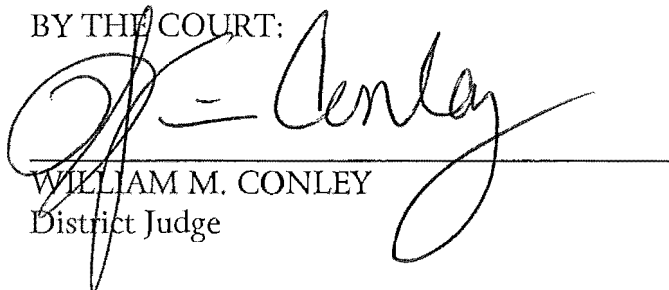 BY THE COURT:
Conley
WILLIAM M. CONLEY
District Judge